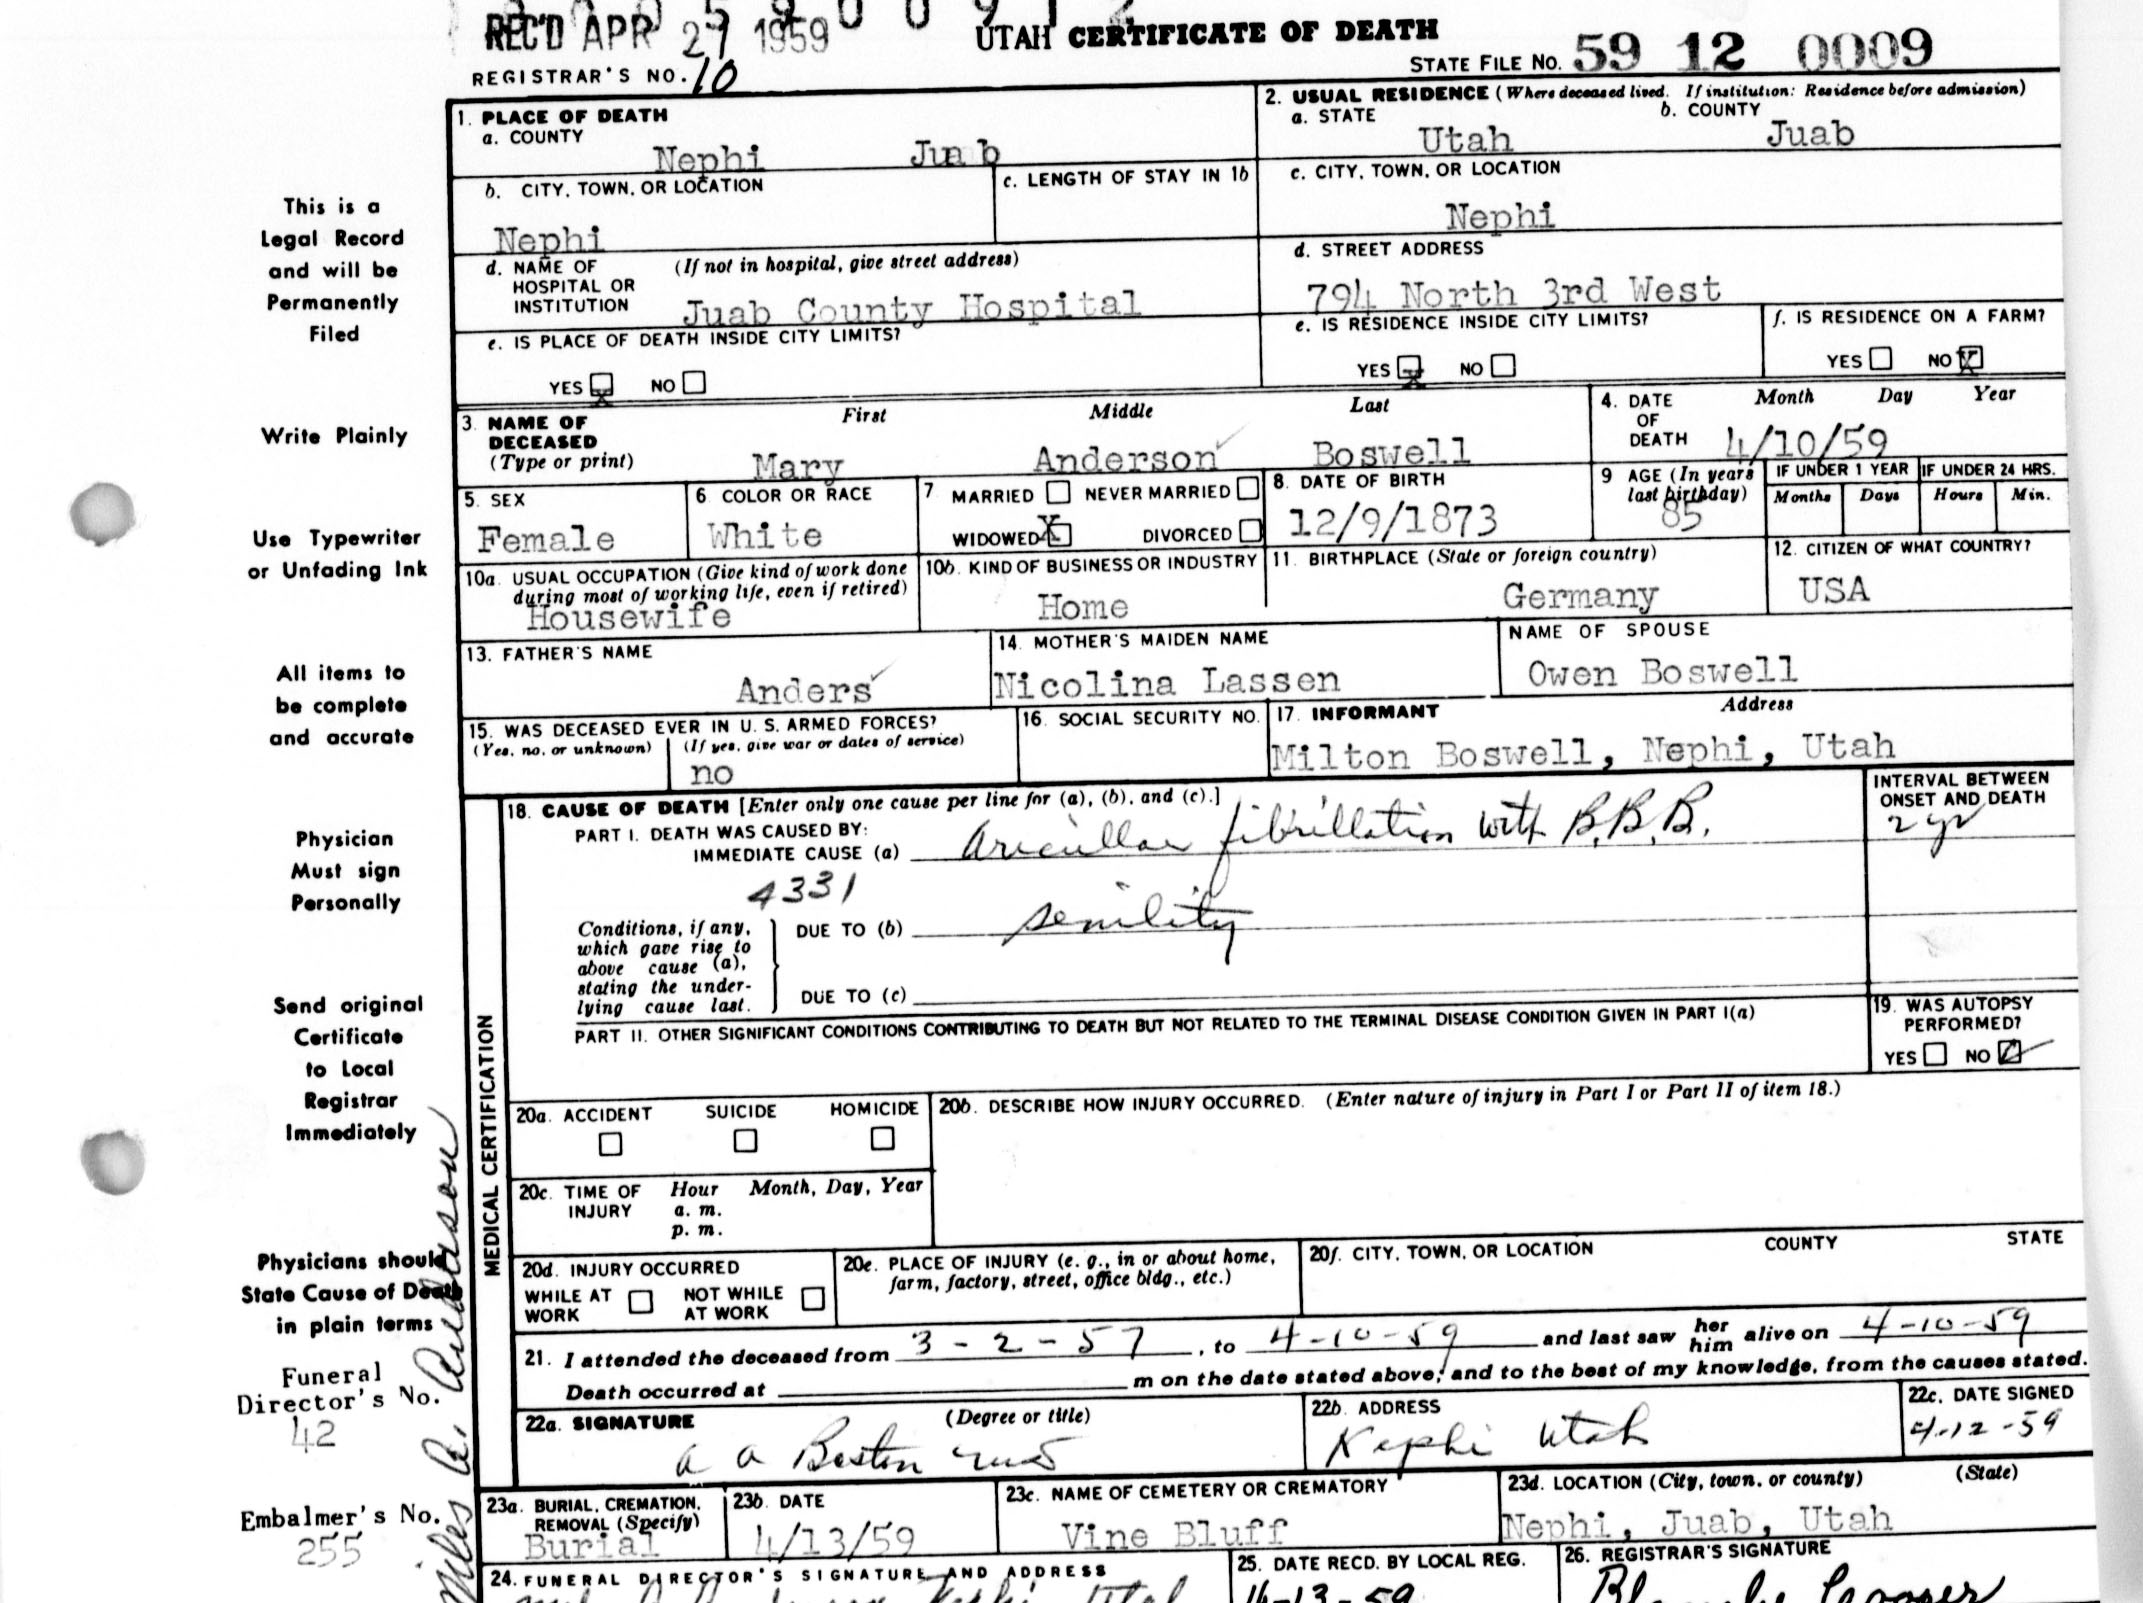 REC'D APR 27 1959
UTAH CERTIFICATE OF DEATH
REGISTRAR'S NO. 10
STATE FILE NO. 59 12 0009
1. PLACE OF DEATH
a. COUNTY
Nephi Juab
2. USUAL RESIDENCE (Where deceased lived. If institution: Residence before admission)
a. STATE b. COUNTY
Utah Juab
b. CITY, TOWN, OR LOCATION
Nephi
c. LENGTH OF STAY IN 1b
c. CITY, TOWN, OR LOCATION
Nephi
d. NAME OF (If not in hospital, give street address)
HOSPITAL OR
INSTITUTION Juab County Hospital
d. STREET ADDRESS
794 North 3rd West
e. IS PLACE OF DEATH INSIDE CITY LIMITS?
YES X NO
e. IS RESIDENCE INSIDE CITY LIMITS?
YES X NO
f. IS RESIDENCE ON A FARM?
YES NO X
3. NAME OF DECEASED First Middle Last
(Type or print) Mary Anderson Boswell
4. DATE OF DEATH Month Day Year
4/10/59
5. SEX
Female
6. COLOR OR RACE
White
7 MARRIED NEVER MARRIED
WIDOWED X DIVORCED
8. DATE OF BIRTH
12/9/1873
9 AGE (In years last birthday)
85
IF UNDER 1 YEAR IF UNDER 24 HRS.
Months Days Hours Min.
10a. USUAL OCCUPATION (Give kind of work done
during most of working life, even if retired)
Housewife
10b. KIND OF BUSINESS OR INDUSTRY
Home
11. BIRTHPLACE (State or foreign country)
Germany
12. CITIZEN OF WHAT COUNTRY?
USA
13. FATHER'S NAME
Anders
14. MOTHER'S MAIDEN NAME
Nicolina Lassen
NAME OF SPOUSE
Owen Boswell
15. WAS DECEASED EVER IN U. S. ARMED FORCES?
(Yes, no, or unknown) (If yes, give war or dates of service)
no
16. SOCIAL SECURITY NO.
17. INFORMANT Address
Milton Boswell, Nephi, Utah
18. CAUSE OF DEATH [Enter only one cause per line for (a), (b), and (c).]
PART I. DEATH WAS CAUSED BY:
IMMEDIATE CAUSE (a) fibrillation with B.B.B.
INTERVAL BETWEEN
ONSET AND DEATH
2 yr
4331
Conditions, if any,
which gave rise to
above cause (a),
stating the under-
lying cause last.
DUE TO (b) senility
DUE TO (c)
PART II. OTHER SIGNIFICANT CONDITIONS CONTRIBUTING TO DEATH BUT NOT RELATED TO THE TERMINAL DISEASE CONDITION GIVEN IN PART I(a)
19. WAS AUTOPSY
PERFORMED?
YES NO
MEDICAL CERTIFICATION
20a. ACCIDENT SUICIDE HOMICIDE
20b. DESCRIBE HOW INJURY OCCURRED. (Enter nature of injury in Part I or Part II of item 18.)
20c. TIME OF INJURY Hour Month, Day, Year
a. m.
p. m.
20d. INJURY OCCURRED
WHILE AT WORK NOT WHILE AT WORK
20e. PLACE OF INJURY (e. g., in or about home,
farm, factory, street, office bldg., etc.)
20f. CITY, TOWN, OR LOCATION COUNTY STATE
21. I attended the deceased from 3-2-57, to 4-10-59 and last saw her him alive on 4-10-59
Death occurred at m on the date stated above; and to the best of my knowledge, from the causes stated.
22a. SIGNATURE (Degree or title)
22b. ADDRESS
Nephi Utah
22c. DATE SIGNED
4-12-59
23a. BURIAL, CREMATION,
REMOVAL (Specify)
Burial
23b. DATE
4/13/59
23c. NAME OF CEMETERY OR CREMATORY
Vine Bluff
23d. LOCATION (City, town, or county) (State)
Nephi, Juab, Utah
24. FUNERAL DIRECTOR'S SIGNATURE AND ADDRESS
25. DATE RECD. BY LOCAL REG.
26. REGISTRAR'S SIGNATURE
This is a
Legal Record
and will be
Permanently
Filed
Write Plainly
Use Typewriter
or Unfading Ink
All items to
be complete
and accurate
Physician
Must sign
Personally
Send original
Certificate
to Local
Registrar
Immediately
Physicians should
State Cause of Death
in plain terms
Funeral
Director's No.
42
Embalmer's No.
255
Miles A. Anderson